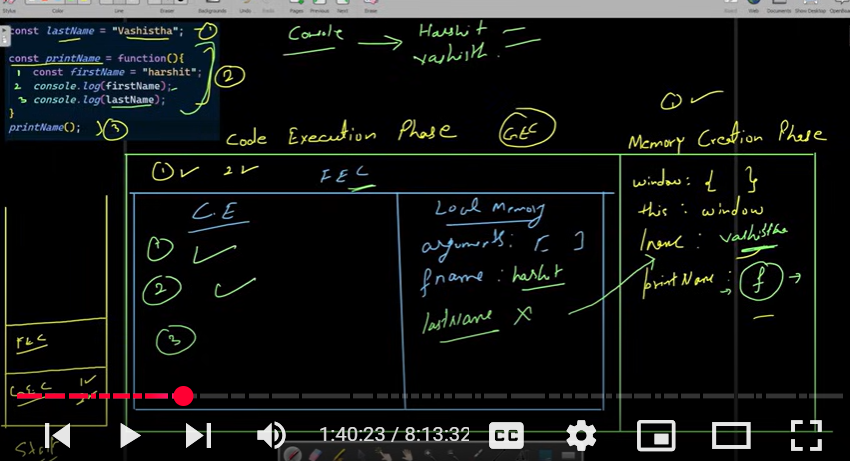 Styles
Pens
Line
Eraser
Backgrounds
Undo
Pages
Previous
Next
Erase
Board
Web
Show Desktop
const lastName = "Vashistha"; 1
const printName = function(){
1 const firstName = "harshit";
2 console.log(firstName);
3 console.log(lastName);
}
2
printName(); 3
Console → Harshit
vashisth.
1 ✓
Code Execution Phase GEC
Memory Creation Phase
1 ✓ 2 ✓ FEC
C.E
Local Memory
1 ✓
arguments: [ ]
2 ✓
fname: harshit
3
lastName X
window: { }
this: window
lname: vashistha
printName: f →
FEC
G.E.C 1 ✓
Start
1:40:23 / 8:13:32
CC